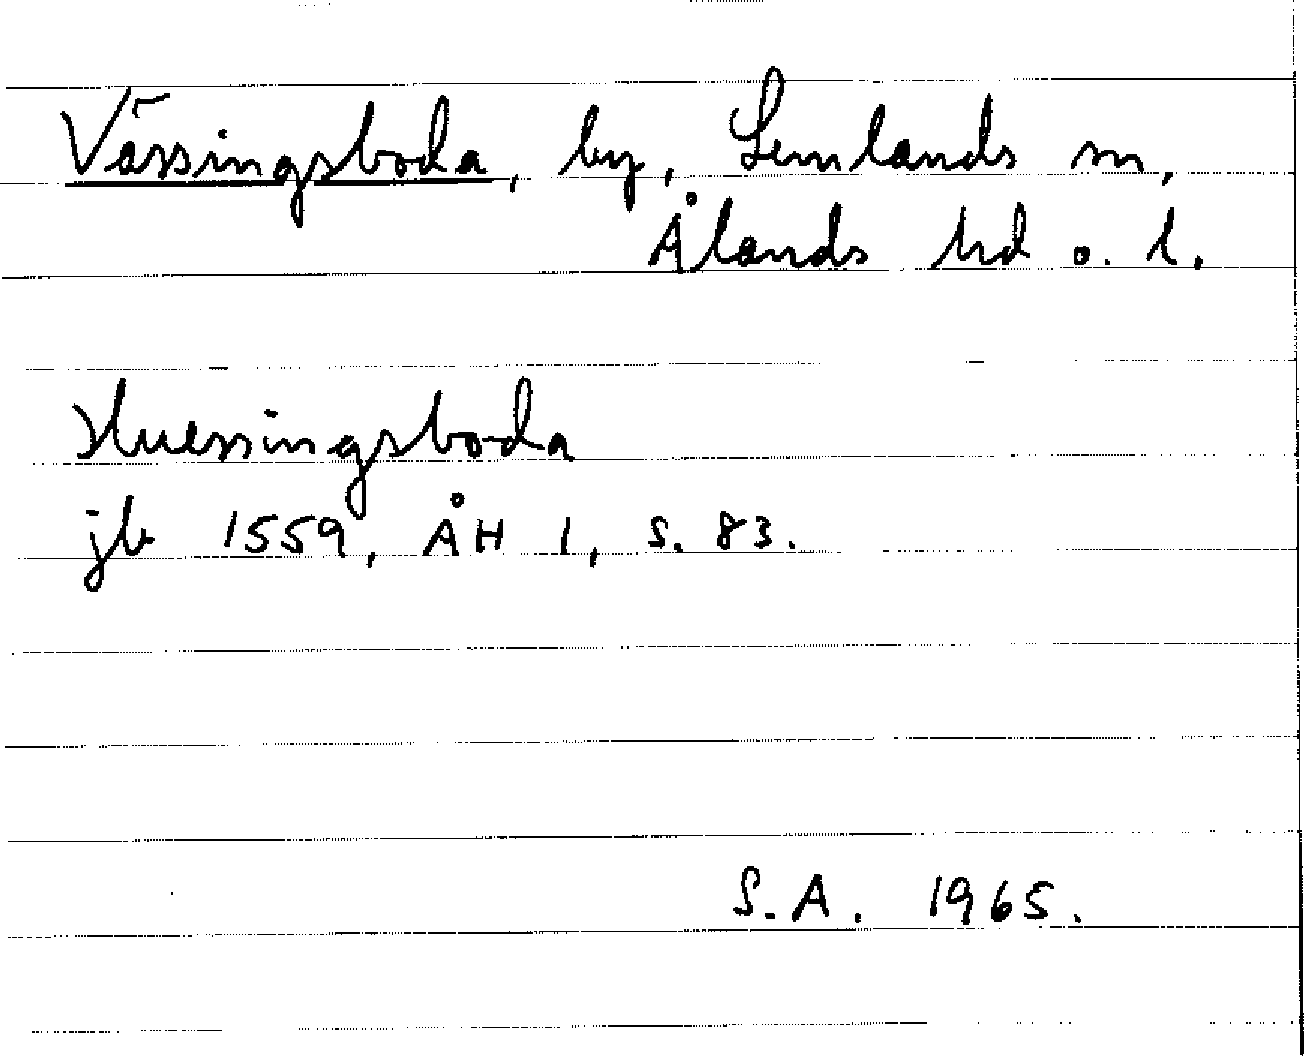 Vässingsboda, by, Lemlands sn,
Ålands hd o. l.
Huessingsboda
jb 1559, ÅH 1, s. 83.
S.A. 1965.